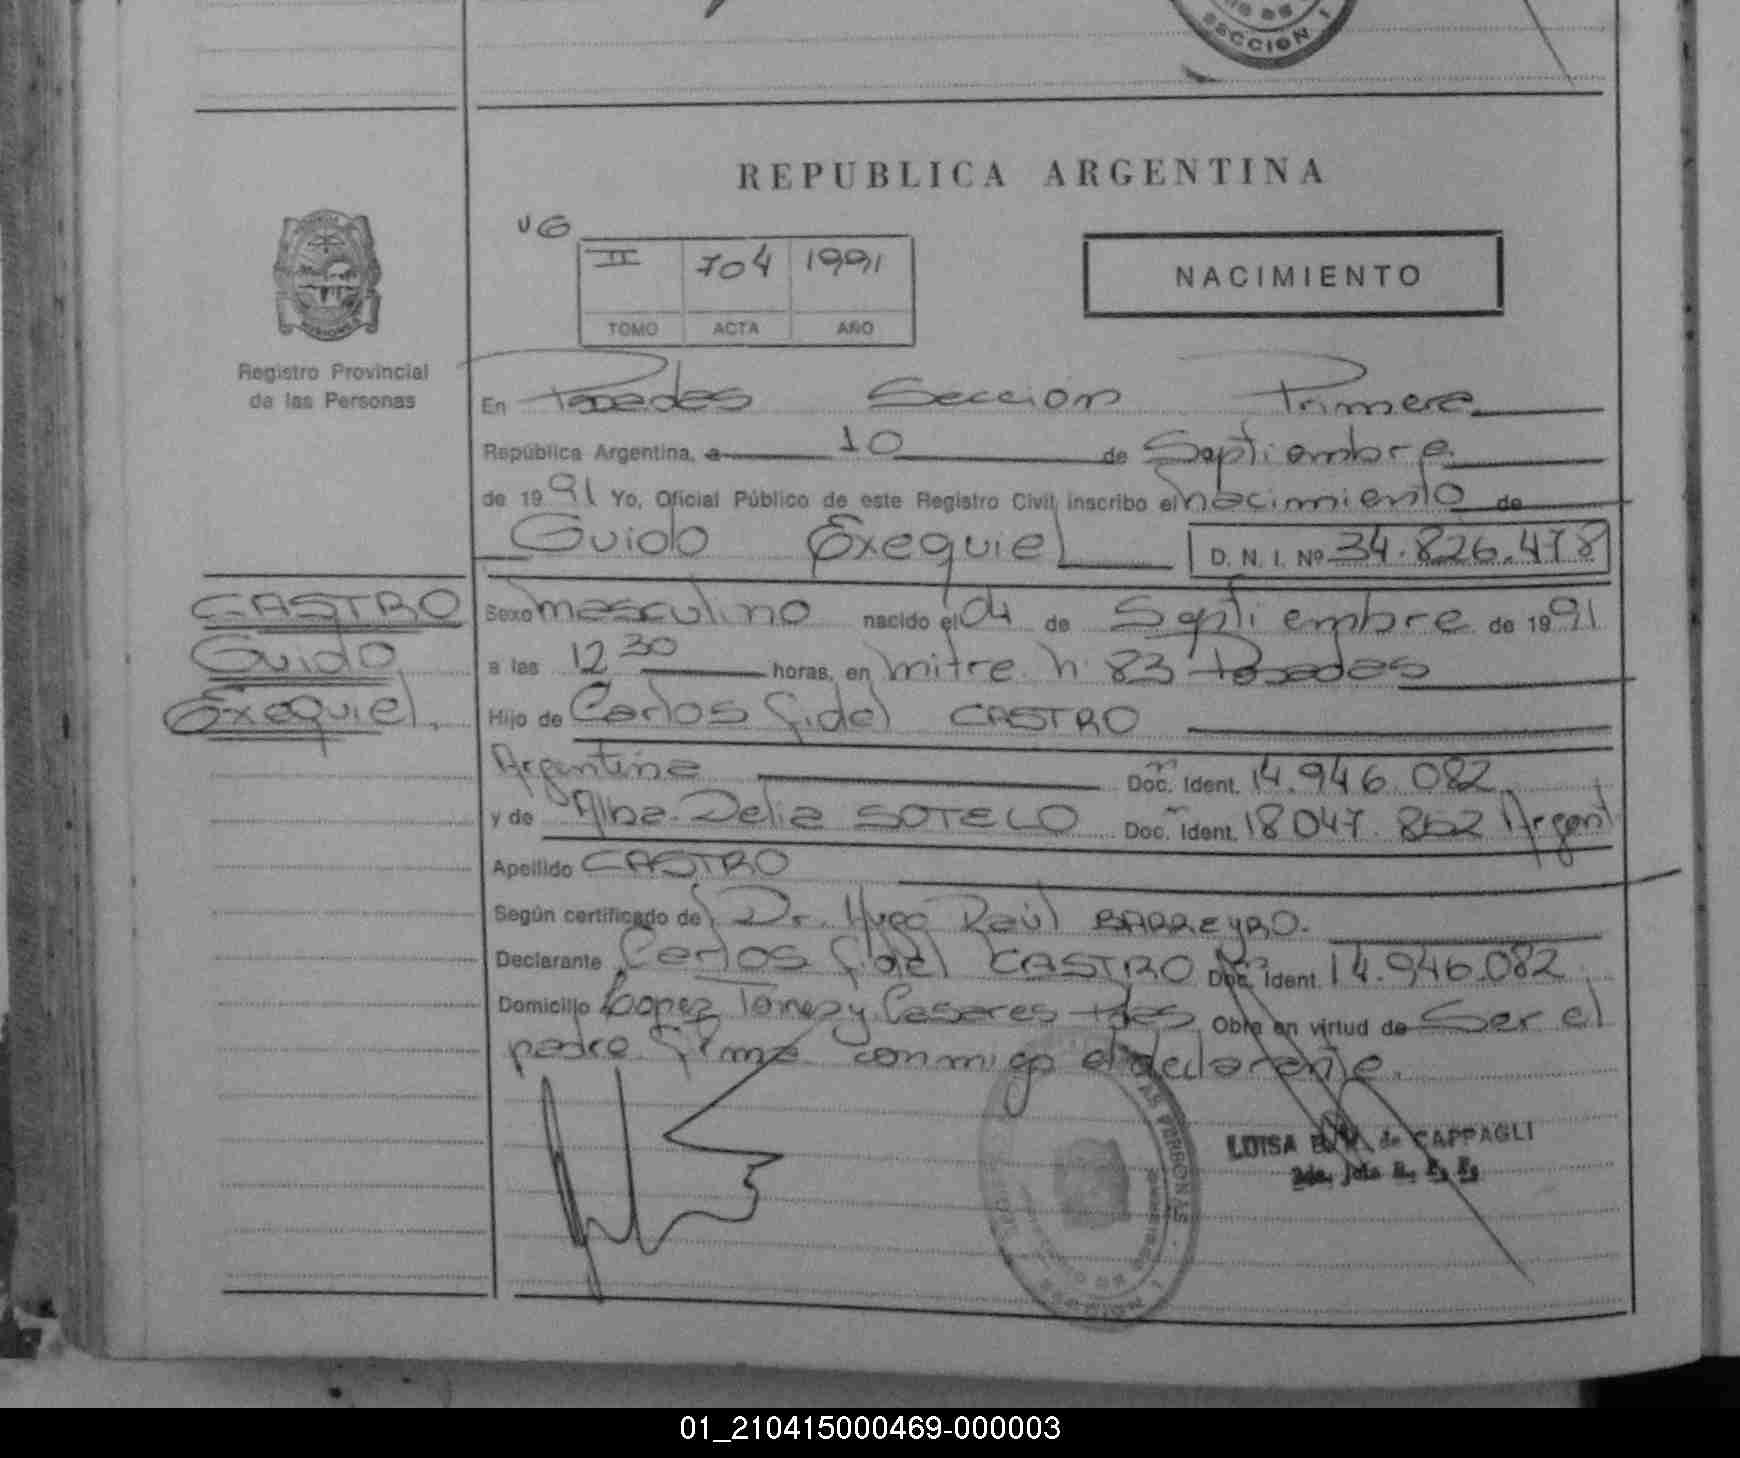 SECCION I
REPUBLICA ARGENTINA
II 704 1991
TOMO ACTA AÑO
NACIMIENTO
Registro Provincial
de las Personas
En Posadas Sección Primera
República Argentina, a 10 de Septiembre
de 1991 Yo, Oficial Público de este Registro Civil inscribo el nacimiento de
Guido Exequiel D. N. I. Nº 34.826.478
CASTRO
Guido
Exequiel.
Sexo masculino nacido el 04 de Septiembre de 1991
a las 12 30 horas, en mitre n. 83 Posadas
Hijo de Carlos fidel CASTRO
Argentina Doc. Ident. 14.946.082
y de Alba Delia SOTELO Doc. Ident. 18 047. 862 Argent
Apellido CASTRO
Según certificado del Dr. Hugo Raúl BARREYRO.
Declarante Carlos fidel CASTRO Doc. Ident. 14.946.082
Domicilio Lopez Torres y Casares Obra en virtud de Ser el
padre firma conmigo el declarante.
LUISA de CAPPAGLI
01_210415000469-000003